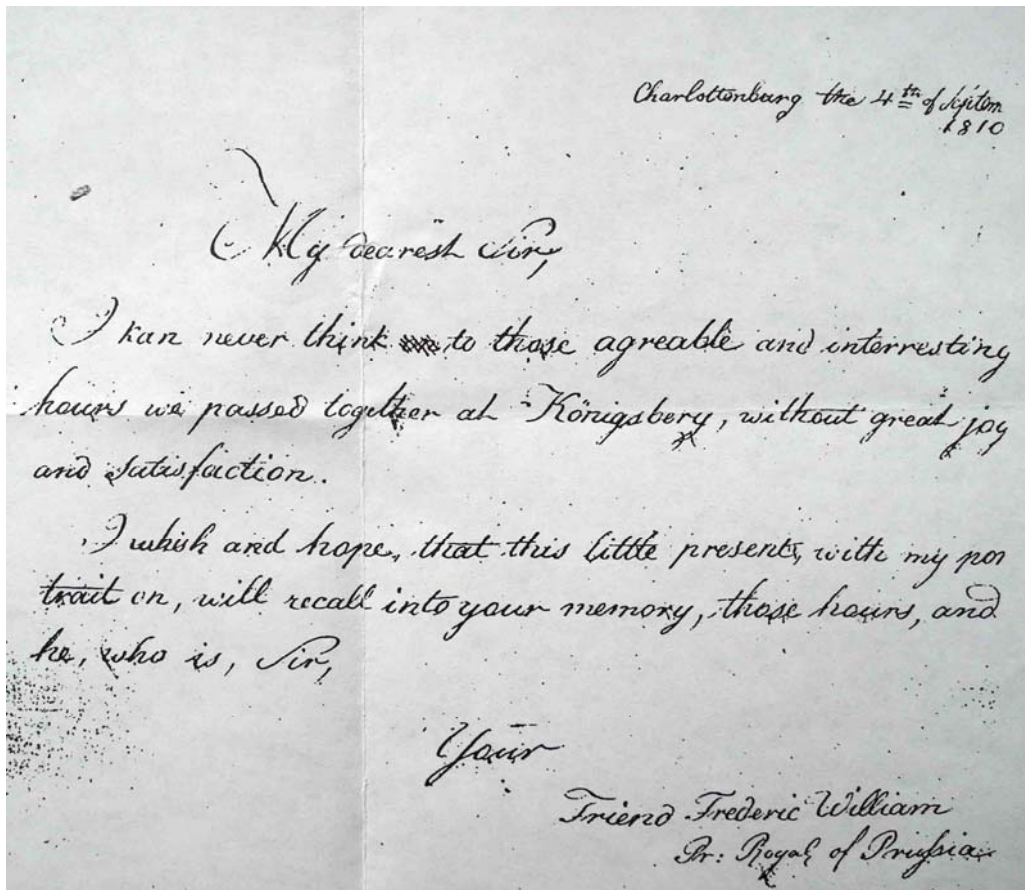 Charlottenburg the 4th of Septem
1810
My dearest Sir,
I kan never think to those agreable and interresting
hours we passed together at Königsberg, without great joy
and satisfaction.
I whish and hope, that this little present, with my por
trait on, will recall into your memory, those hours, and
he, who is, Sir,
Your
Friend Frederic William
Pr: Royal of Prussia